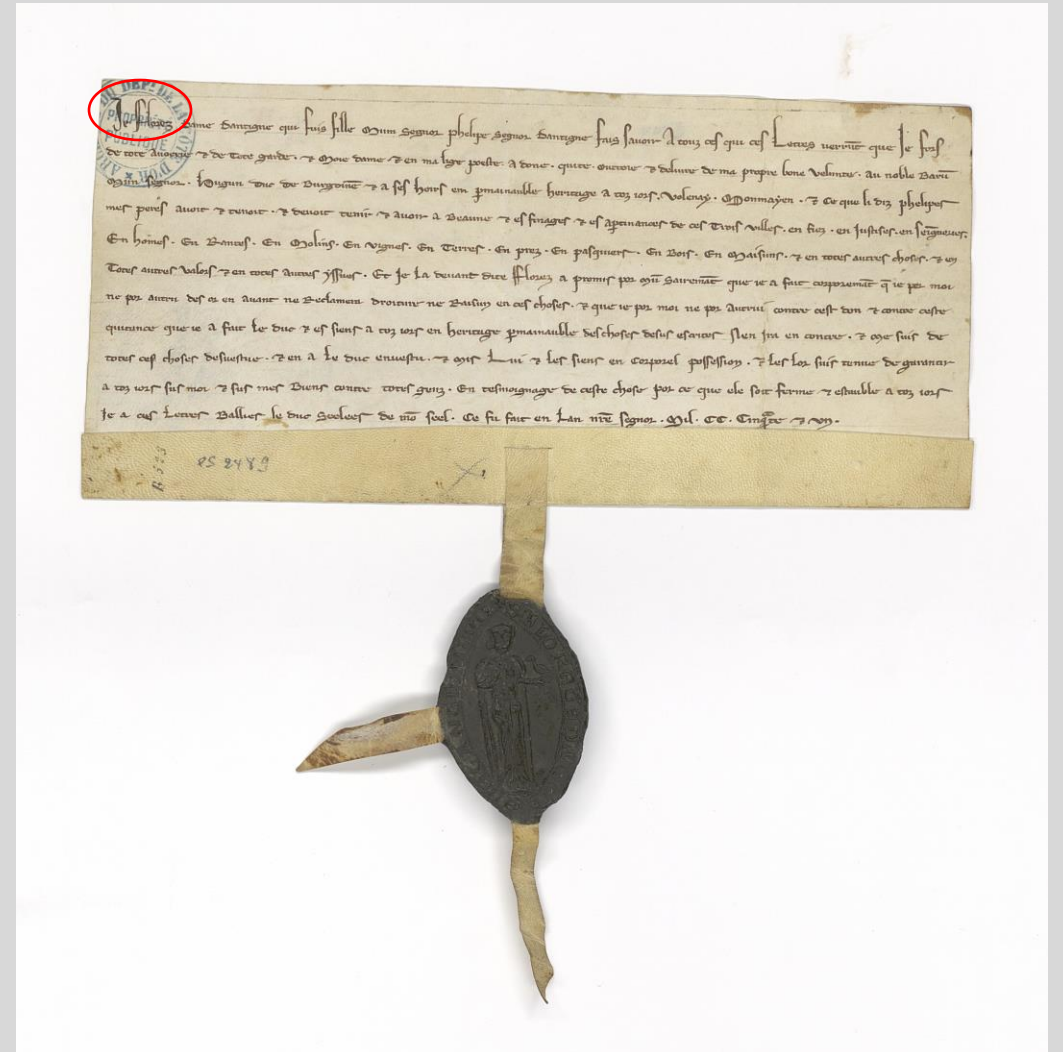 Je fflorez dame dantigne qui fuis fille Mum Segnor phelipe Segnor dantigne fais savoir A touz ces qui ces Lettres verrūt que Je fors
de tote Avoerie & de Tote garde. & Moie dame & en ma lige poeste A done. quite. Outroie & delivre de ma propre bone Volunte. Au noble Barū
Mun Segnor. hugun duc de Burgoine & a ses heirs em pmainauble heritage a toz iors. Volenay. Monmayen. & Ce que li diz phelipes
mes peres avoit & tenoit. & devoit tenir & avoir a Beaune & es finages & es aptinances de ces Trois villes. en fiez. en Justises. en seignueries.
En homes. En Rantes. En Molins. En vignes. En Terres. En prez. En pasquiers. En Bois. En Maisuns. & en totes autres choses. & en
Totes autres Valors & en totes autres yssues. Et Je La devant dite fflorez a promis por Mū Sairemāt que ie a fait corporemāt q̄ ie por moi
ne por autrui des or en avant ne Reclamerai droiture ne Raisun en ces choses. & que ie por moi ne por Autrui contre cest don & contre ceste
quitance que ie a fait Le duc & es siens a toz iors en heritage pmainauble des choses desus escrites Nen Irai en contre. & Me suis de
totes ces choses desvestue. & en A Le duc envestu. & Mis Lui & les siens en Corporel possession. & les lor suis tenue de garantir
a toz iors sus moi & sus mes Biens contre totes genz. En tesmoignage de ceste chose Por ce que ele soit ferme & estauble a toz iors
Je a ces Letres Ballies le duc Seelees de mō seel. Ce fu fait en Lan nr̄e segnor. Mil. CC. Cinqte & un.
B 523
PS 2489